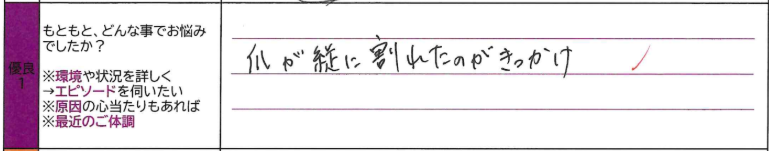 優良
1
もともと、どんな事でお悩み
でしたか？
※環境や状況を詳しく
→エピソードを伺いたい
※原因の心当たりもあれば
※最近のご体調
爪が縦に割れたのがきっかけ